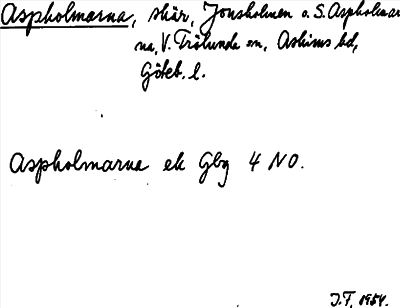 Aspholmarna, skär, Jonsholmen o. S. Aspholmar
na, V. Frölunda sn, Askims hd,
Göteb. l.
Aspholmarna ek Gbg 4 NO.
J.T. 1954.